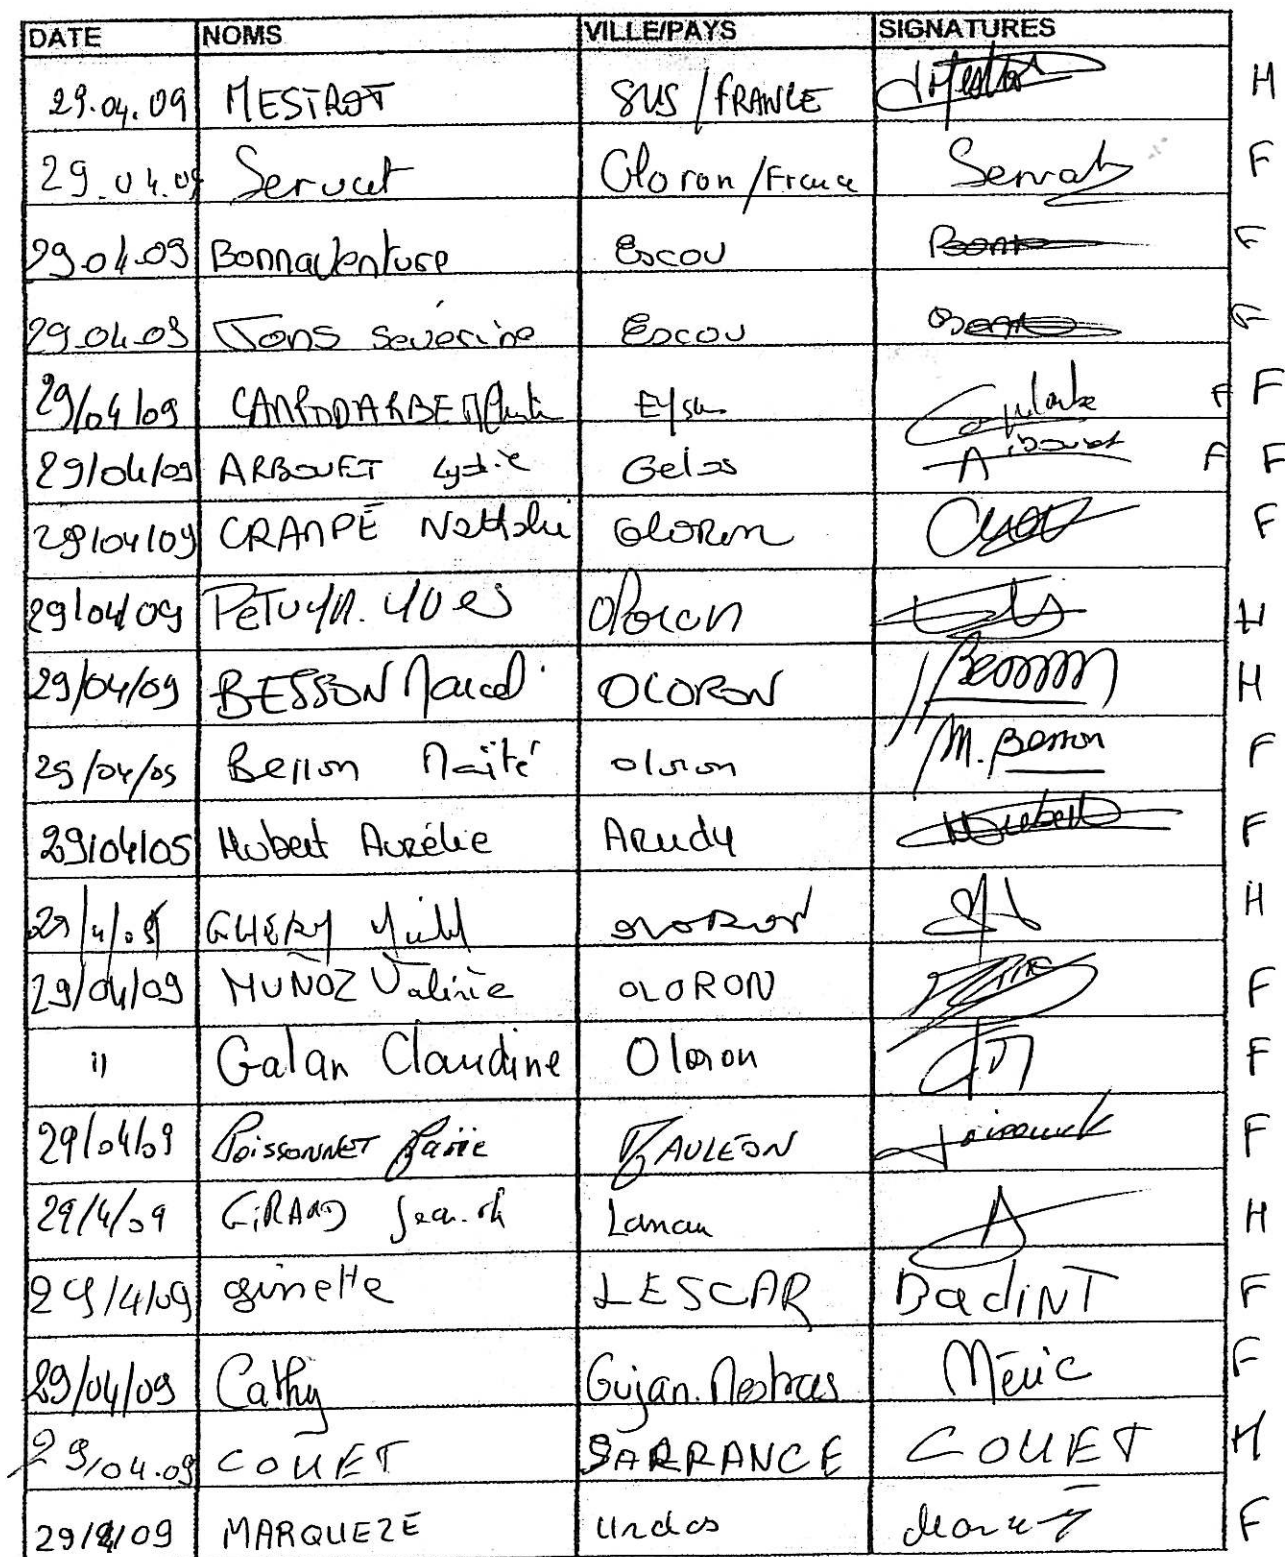 DATE NOMS VILLE/PAYS SIGNATURES
29.04.09 MESTROT SUS / FRANCE H
29.04.09 Servat Oloron / France Servat F
29.04.09 Bonnaventure Escou F
29.04.09 Tons severine Escou F
29/04/09 Eysus F F
29/04/09 ARBOUET Lydie Gelos Arbouet F F
29/04/09 CRAMPÉ Nathalie OLORON F
29/04/09 Oloron H
29/04/09 BESSON Marcel OLORON Besson H
29/04/09 Besson Maïté oloron M. Besson F
29/04/09 Hubert Aurélie Arudy Hubert F
29/4/09 OLORON H
29/04/09 MUÑOZ Valérie OLORON F
11 Galan Claudine Oloron F
29/04/09 POISSONNET Marie MAULÉON F
29/4/09 GIRARD H
29/4/09 ginette LESCAR BadiNT F
29/04/09 Cathy Gujan.Mestras Méric F
29/04.09 COUET SARRANCE COUET H
29/4/09 MARQUEZE Undos F